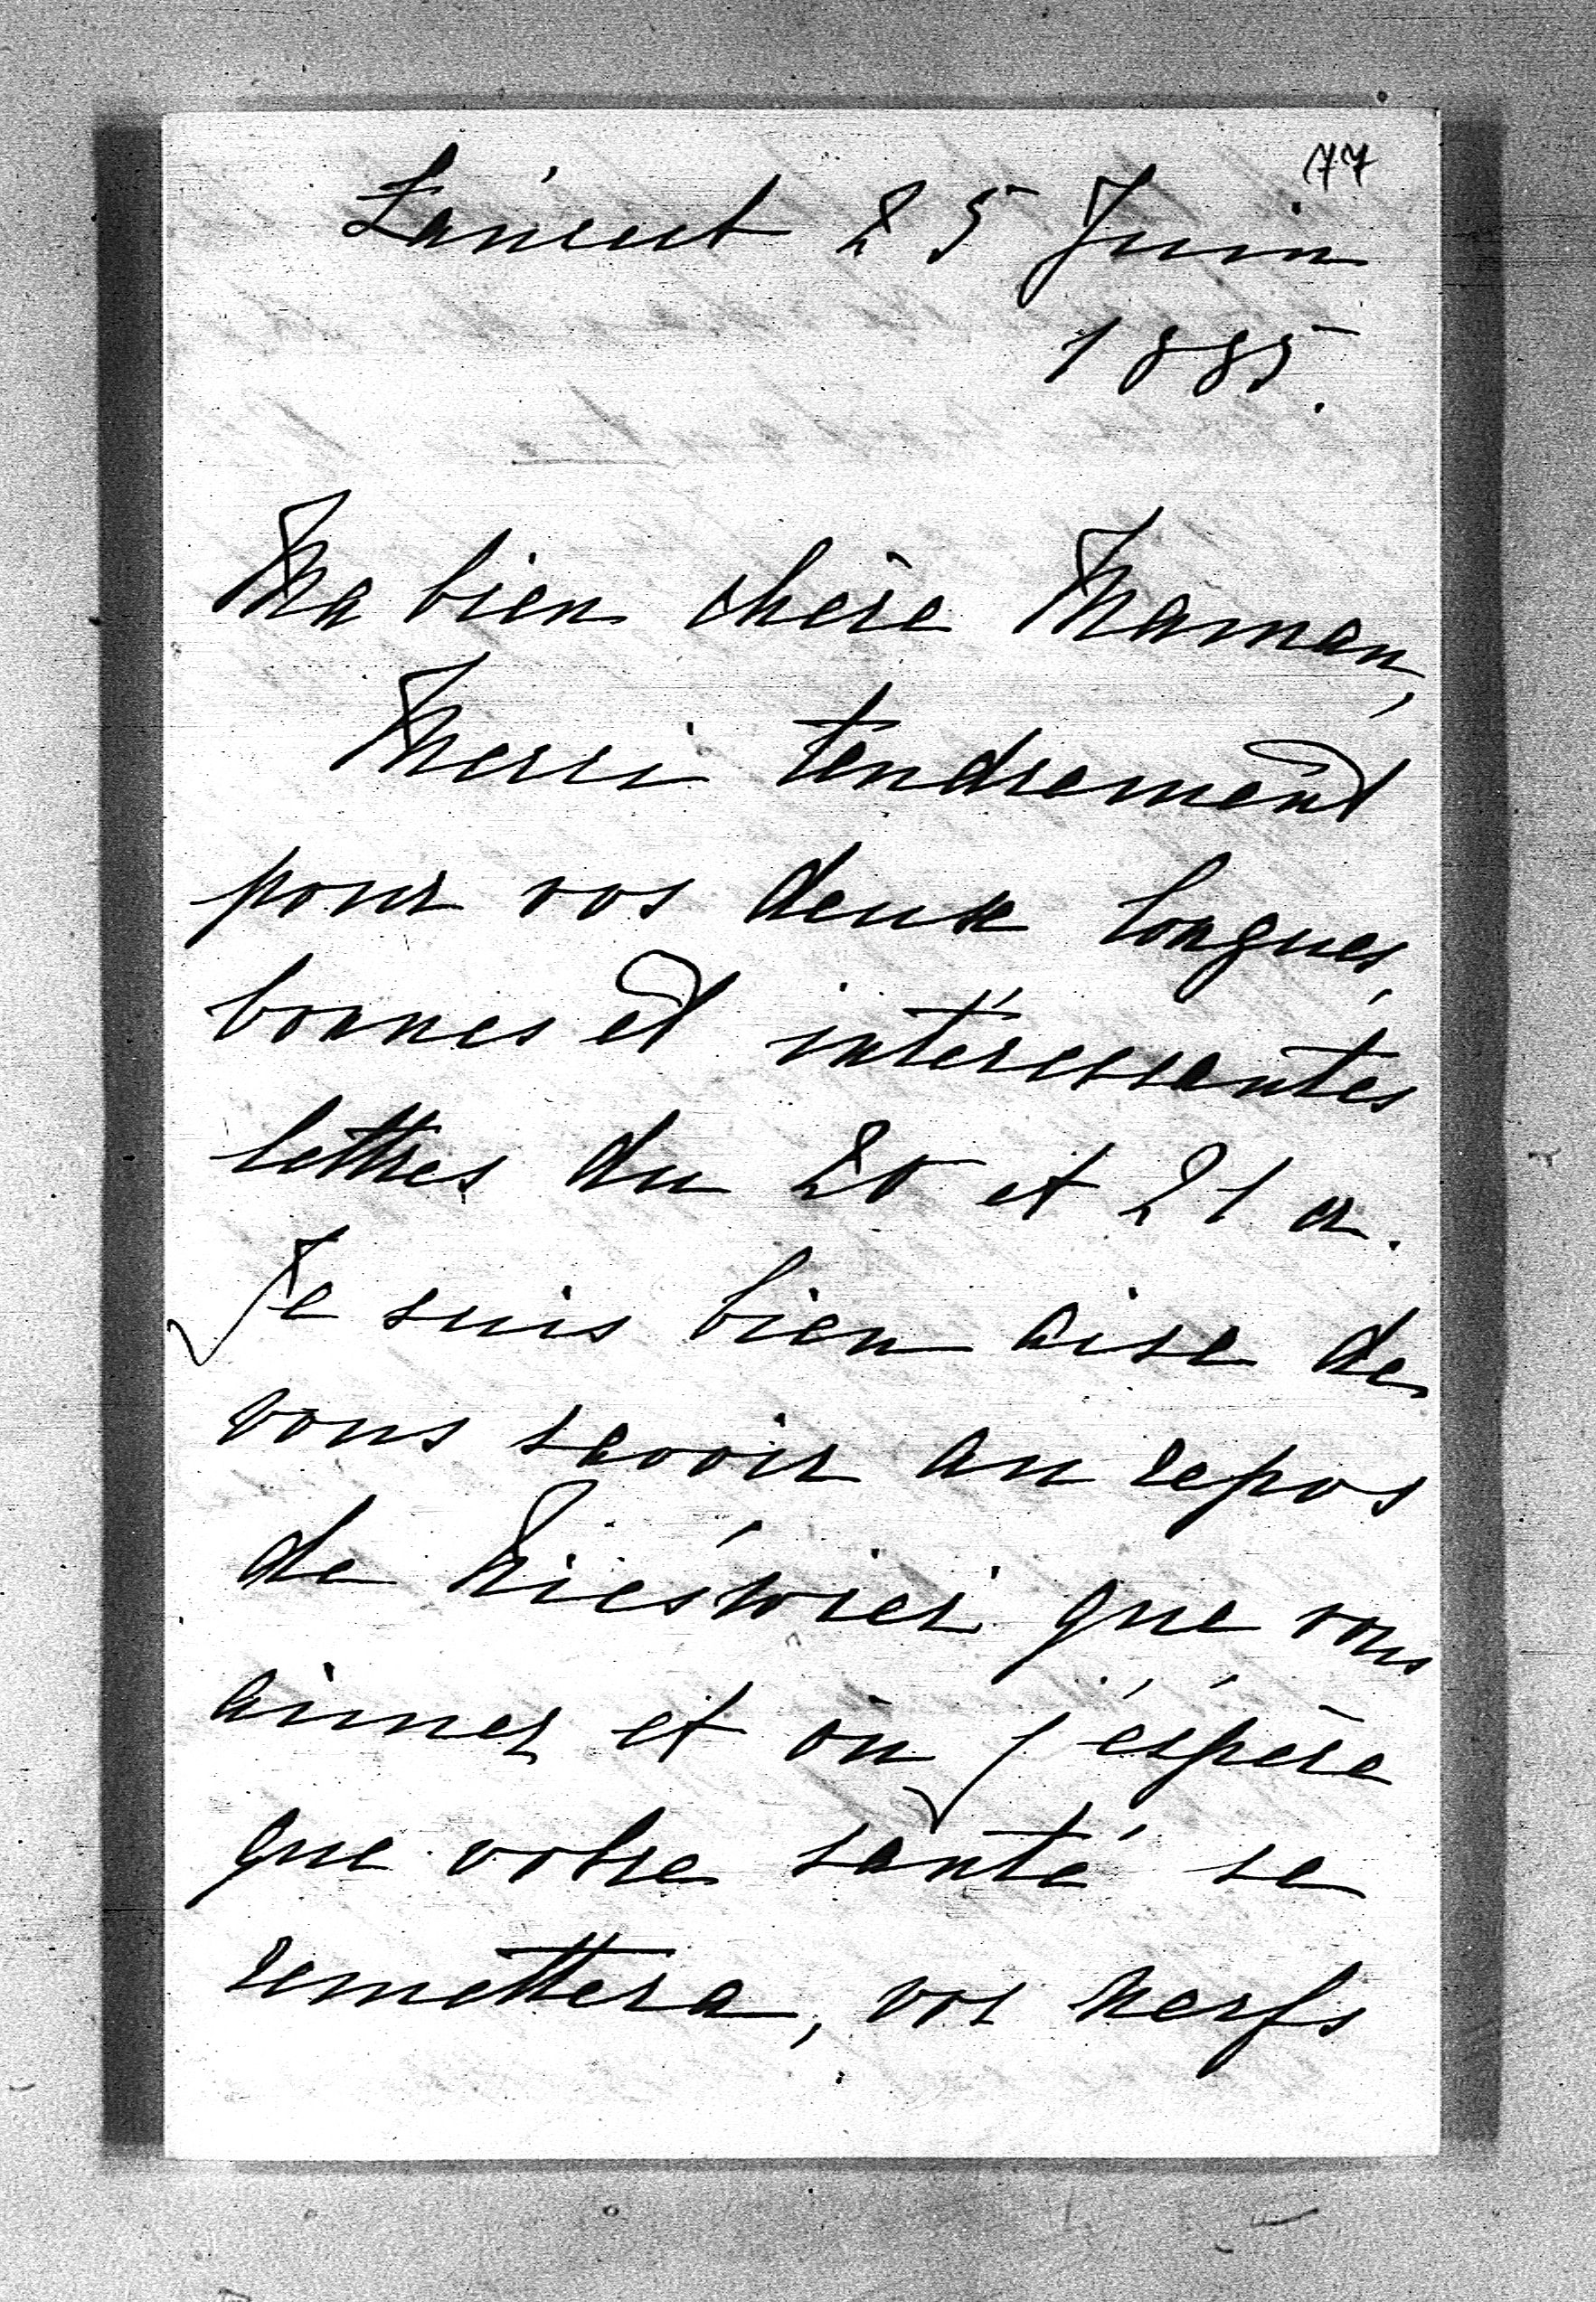 77
Łańcut 25 Juin
1885.
Ma bien chère Maman,
Merci tendrement
pour vos deux longues,
bonnes et intéressantes
lettres du 20 et 21 cr.
Je suis bien aise de
vous savoir au repos
de Nieświez que vous
aimez et où j'éspère
que votre santé se
remettera, vos nerfs